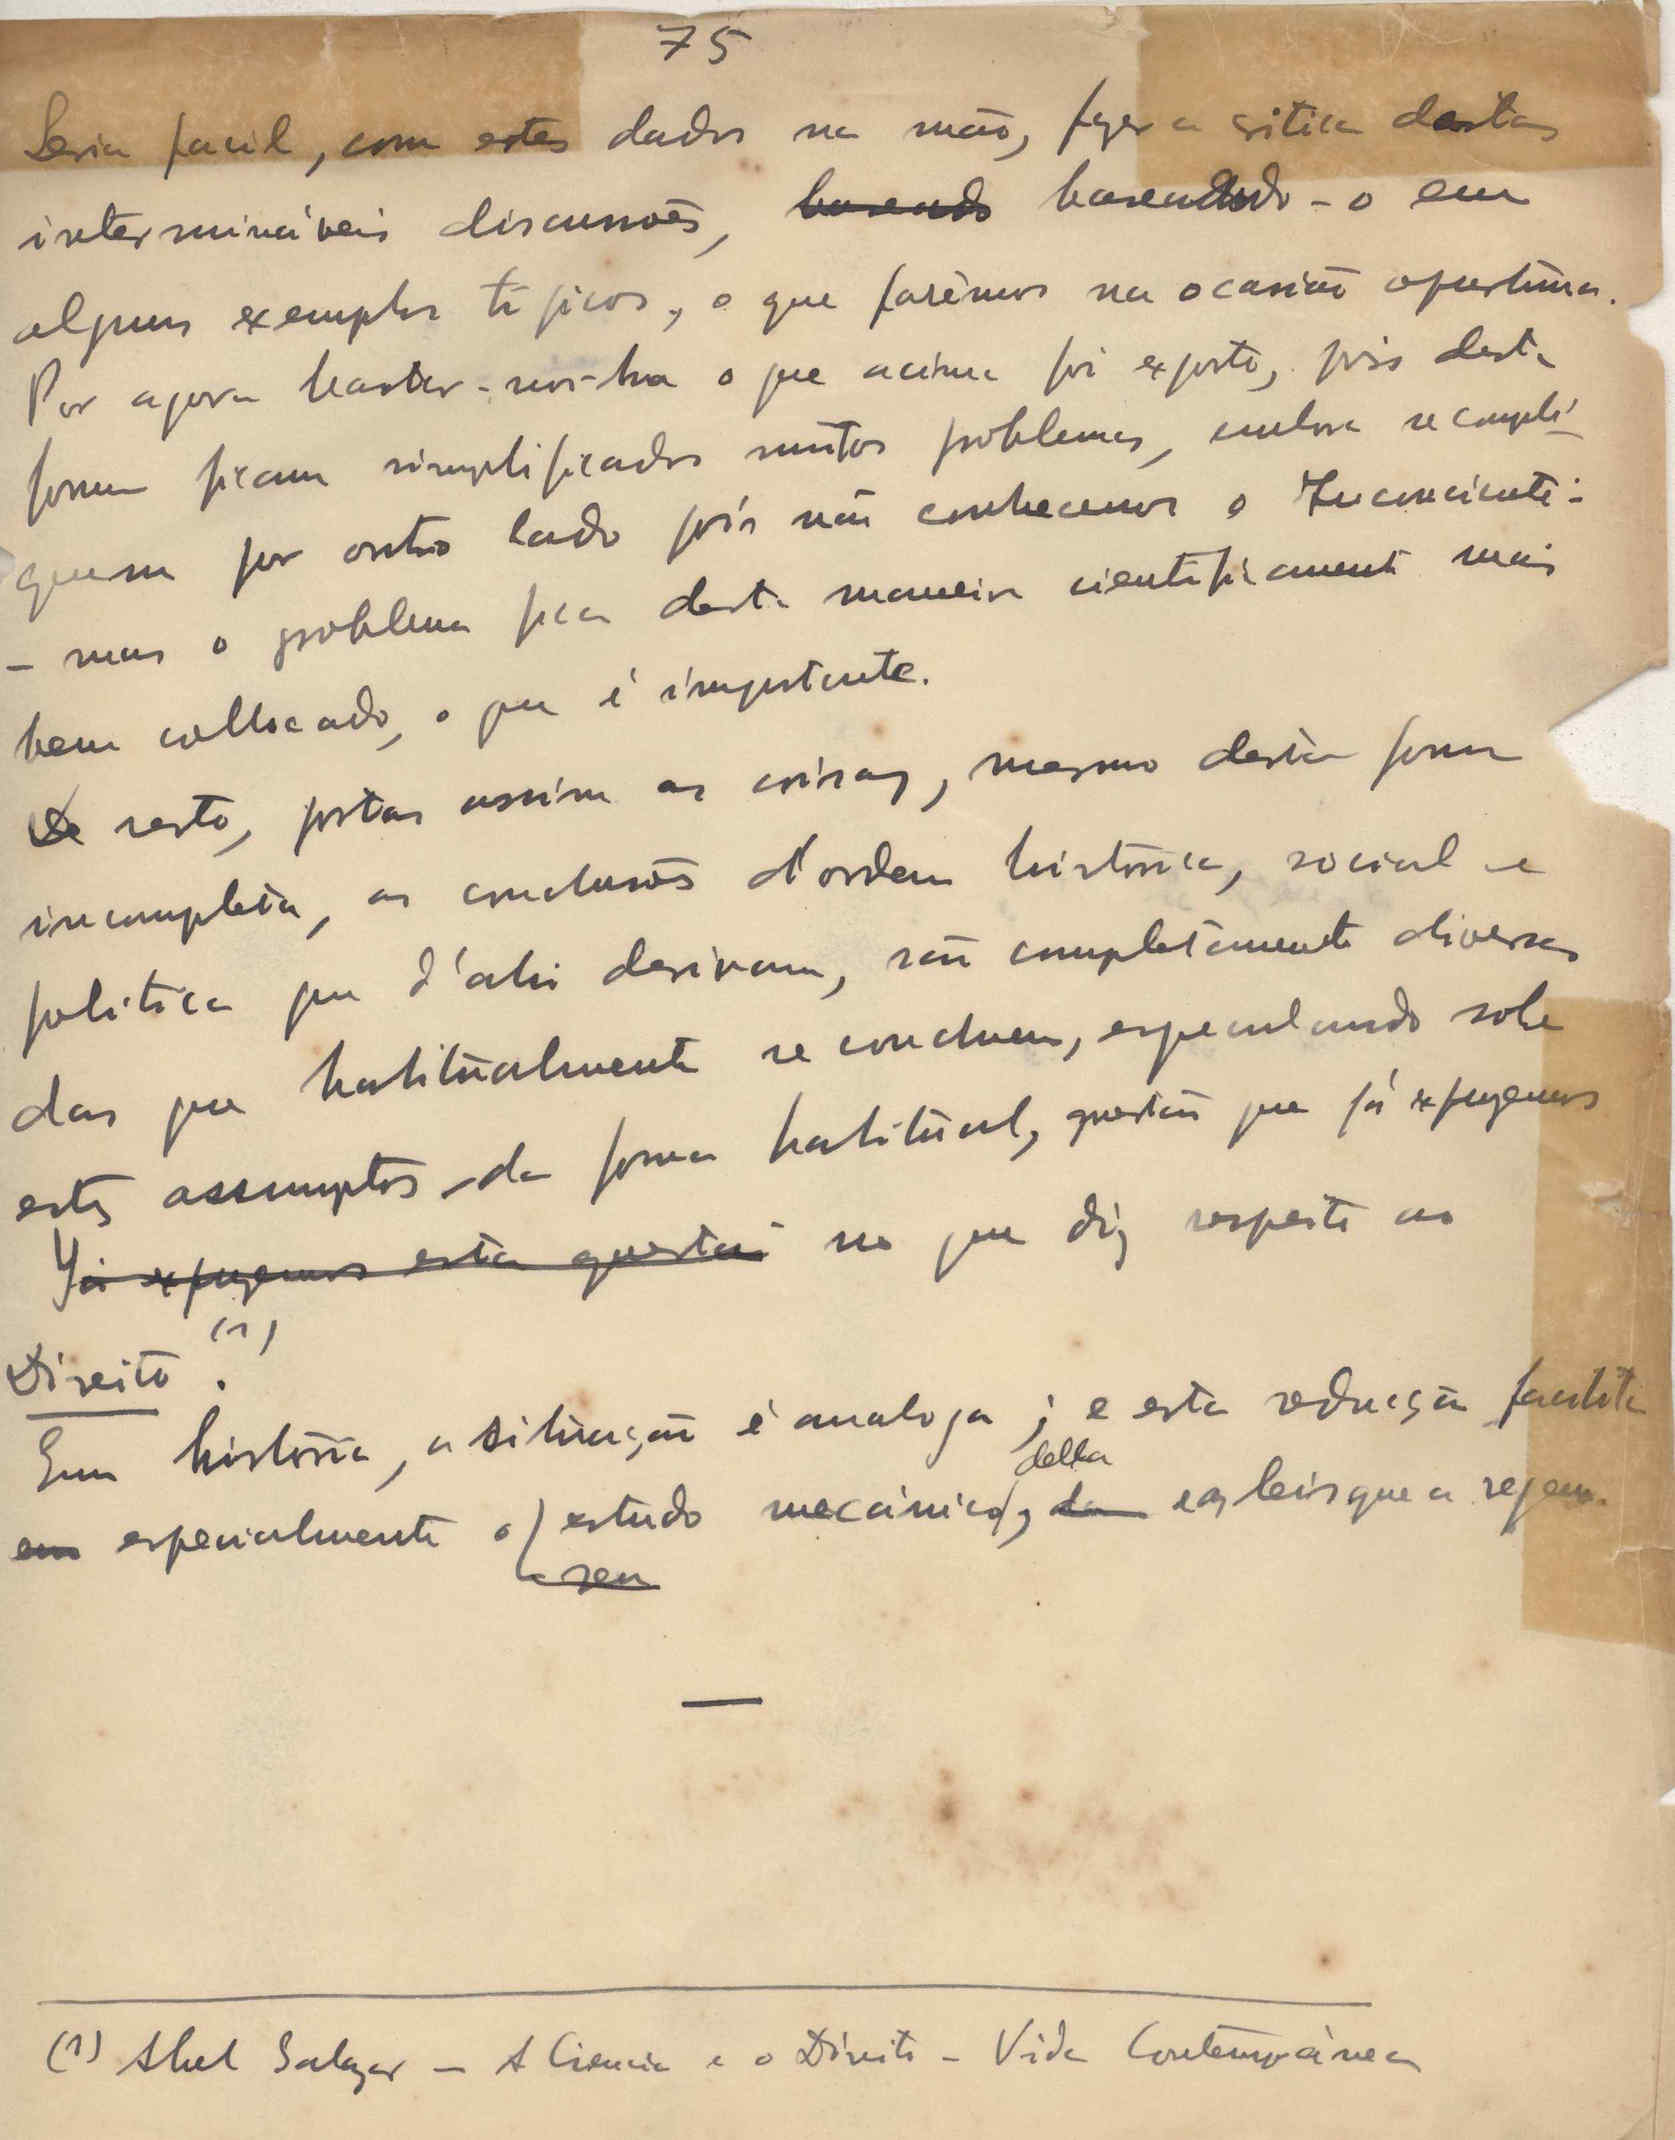 75
Seria facil, com estes dados na mão, fazer a critica destas
intermináveis discussões, baseado baseando-o em
alguns exemplos típicos, o que farêmos na ocasião oportúna.
Por agora bastar-nos-ha o que acima foi exposto, pois desta
forma ficam simplificados muitos problemas, embora se compli-
quem por outro lado pois não conhecemos o Inconciente:
- mas o problema fica desta maneira cientificamente mais
bem collocado, o que é importante.
De resto, postas assim as coisas, mesmo desta forma
incompleta, as conclusões d'ordem história, social e
politica que d'ahi derivam, são completamente diversas
das que habitualmente se concluem, especulando sobre
estes assumptos da forma habitual, questão que já expuzemos
Já expuzemos esta questão no que diz respeito ao
Direito. (1)
Em história, a situação é analoga; e esta reducção facilita
em especialmente o seu estudo mecánico, da della e as leis que a regem.
(1) Abel Salazar - A Ciencia e o Direito - Vida Contemporánea